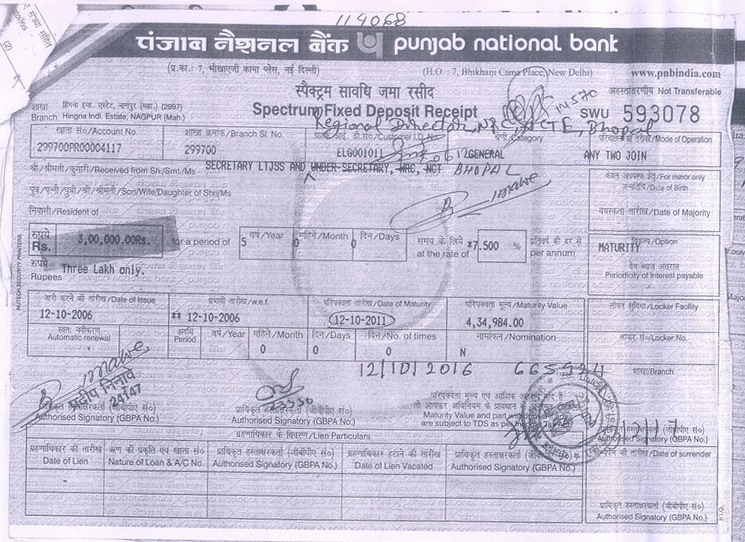 119068
पंजाब नैशनल बैंक punjab national bank
(प्र.का.: 7, भीखाएजी कामा प्लेस, नई दिल्ली) (H.O. : 7, Bhikhaiji Cama Place, New Delhi) www.pnbindia.com
स्पैक्ट्रम सावधि जमा रसीद अहस्तांतरणीय Not Transferable
शाखा हिंगना इन्ड. एस्टेट, नागपुर (महा.) (2997)
Branch Hingna Indl. Estate, NAGPUR (Mah.) Spectrum Fixed Deposit Receipt 14570 SWU 593078
Regional Director, NRC, NCTE, Bhopal
खाता सं०/Account No. शाखा क्रमांक/Branch Sl. No. Customer I.D. No. Category Mode of Operation
299700PR00004117 299700 ELG001011 12GENERAL ANY TWO JOIN
श्री/श्रीमती/कुमारी/Received from Sh./Smt./Ms SECRETARY LTJSS AND UNDER-SECRETARY, WRC, NCT BHOPAL For minor only
Date of Birth
पुत्र/पत्नी/पुत्री/श्री/श्रीमती/Son/Wife/Daughter of Sh./Ms
निवासी/Resident of वयस्कता तारीख/Date of Majority
रुपये
Rs. 3,00,000.00Rs. for a period of 5 वर्ष/Year 0 महिने/Month 0 दिन/Days समय के लिये at the rate of *7.500 % प्रतिवर्ष की दर से per annum MATURITY /Option
रुपये
Rupees Three Lakh only. देय ब्याज अंतराल
Periodicity of Interest payable
जारी करने की तारीख/Date of Issue प्रभावी तारीख/w.e.f. परिपक्वता तारीख/Date of Maturity परिपक्वता मूल्य/Maturity Value लॉकर सुविधा/Locker Facility
12-10-2006 ** 12-10-2006 12-10-2011 4,34,984.00
स्वतः नवीकरण
Automatic renewal अवधि
Period वर्ष/Year महिने/Month दिन/Days दिन/No. of times नामांकन/Nomination लॉकर सं०/Locker No.
0 0 0 N
12/10/2016 665924 शाखा/Branch
24147
प्राधिकृत हस्ताक्षरकर्ता (जीबीपीए सं०) प्राधिकृत हस्ताक्षरकर्ता (जीबीपीए सं०)
Authorised Signatory (GBPA No.) Authorised Signatory (GBPA No.)
परिपक्वता मूल्य एवं आंशिक
Maturity Value and part
are subject to TDS as per
Authorised Signatory (GBPA No.)
ग्रहणाधिकार के विवरण/Lien Particulars
ग्रहणाधिकार की तारीख ऋण की प्रकृति एवं खाता सं० प्राधिकृत हस्ताक्षरकर्ता (जीबीपीए सं०) ग्रहणाधिकार हटाने की तारीख प्राधिकृत हस्ताक्षरकर्ता (जीबीपीए सं०) की तारीख/Date of surrender
Date of Lien Nature of Loan & A/C No. Authorised Signatory (GBPA No.) Date of Lien Vacated Authorised Signatory (GBPA No.)
प्राधिकृत हस्ताक्षरकर्ता (जीबीपीए सं०)
Authorised Signatory (GBPA No.)